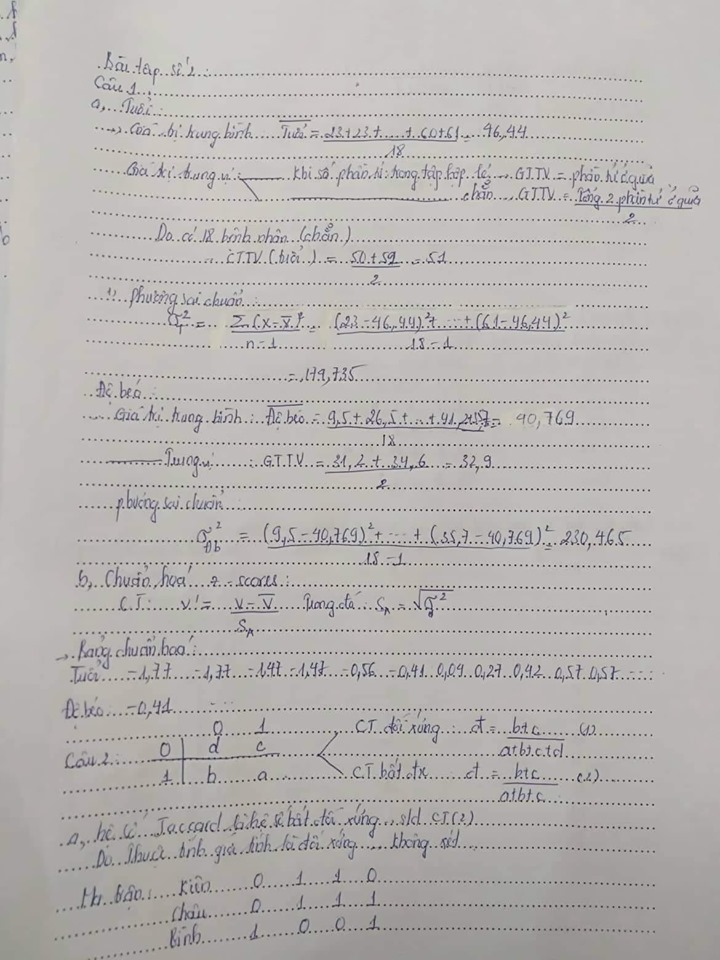 Bài tập số 2:
Câu 1
a, Tuổi:
→ Giá trị trung bình Tuổi = 23+23+...+60+61 = 46,44
18
Giá trị trung vị Khi số phần tử trong tập hợp lẻ → GTTV = phần tử ở giữa
chẵn → GTTV = Tổng 2 phần tử ở giữa
2
Do có 18 bệnh nhân (chẵn)
GTTV (tuổi) = 50+52 = 51
2
phương sai chuẩn:
σ² = Σ(x-x̄)² = (23-46,44)²+...+(61-46,44)²
n-1 18-1
= 179,735
Độ béo:
Giá trị trung bình: Độ béo = 9,5+26,5+...+41,2+35,7 = 40,769
18
Trung vị: GTTV = 31,2+34,6 = 32,9
2
phương sai chuẩn
σ²đb = (9,5-40,769)²+...+(35,7-40,769)² = 230,465
18-1
b, Chuẩn hoá z-scores:
CT: v' = v-v̄ Trong đó S_A = √σ²
S_A
→ Bảng chuẩn hoá:
Tuổi -1,77 -1,77 -1,47 -1,47 -0,56 -0,41 0,09 0,27 0,42 0,57 0,57 ...
Độ béo -0,41 ...
0 1 CT đối xứng: d = b+c (1)
Câu 2: 0 d c a+b+c+d
1 b a CT bất đx d = b+c (2)
a+b+c
a, hệ số Jaccard là hệ số bất đối xứng sld CT(2)
Do thuộc tính giới tính là đối xứng không xét
Kiên 0 1 1 0
Châu 0 1 1 1
Bình 1 0 0 1